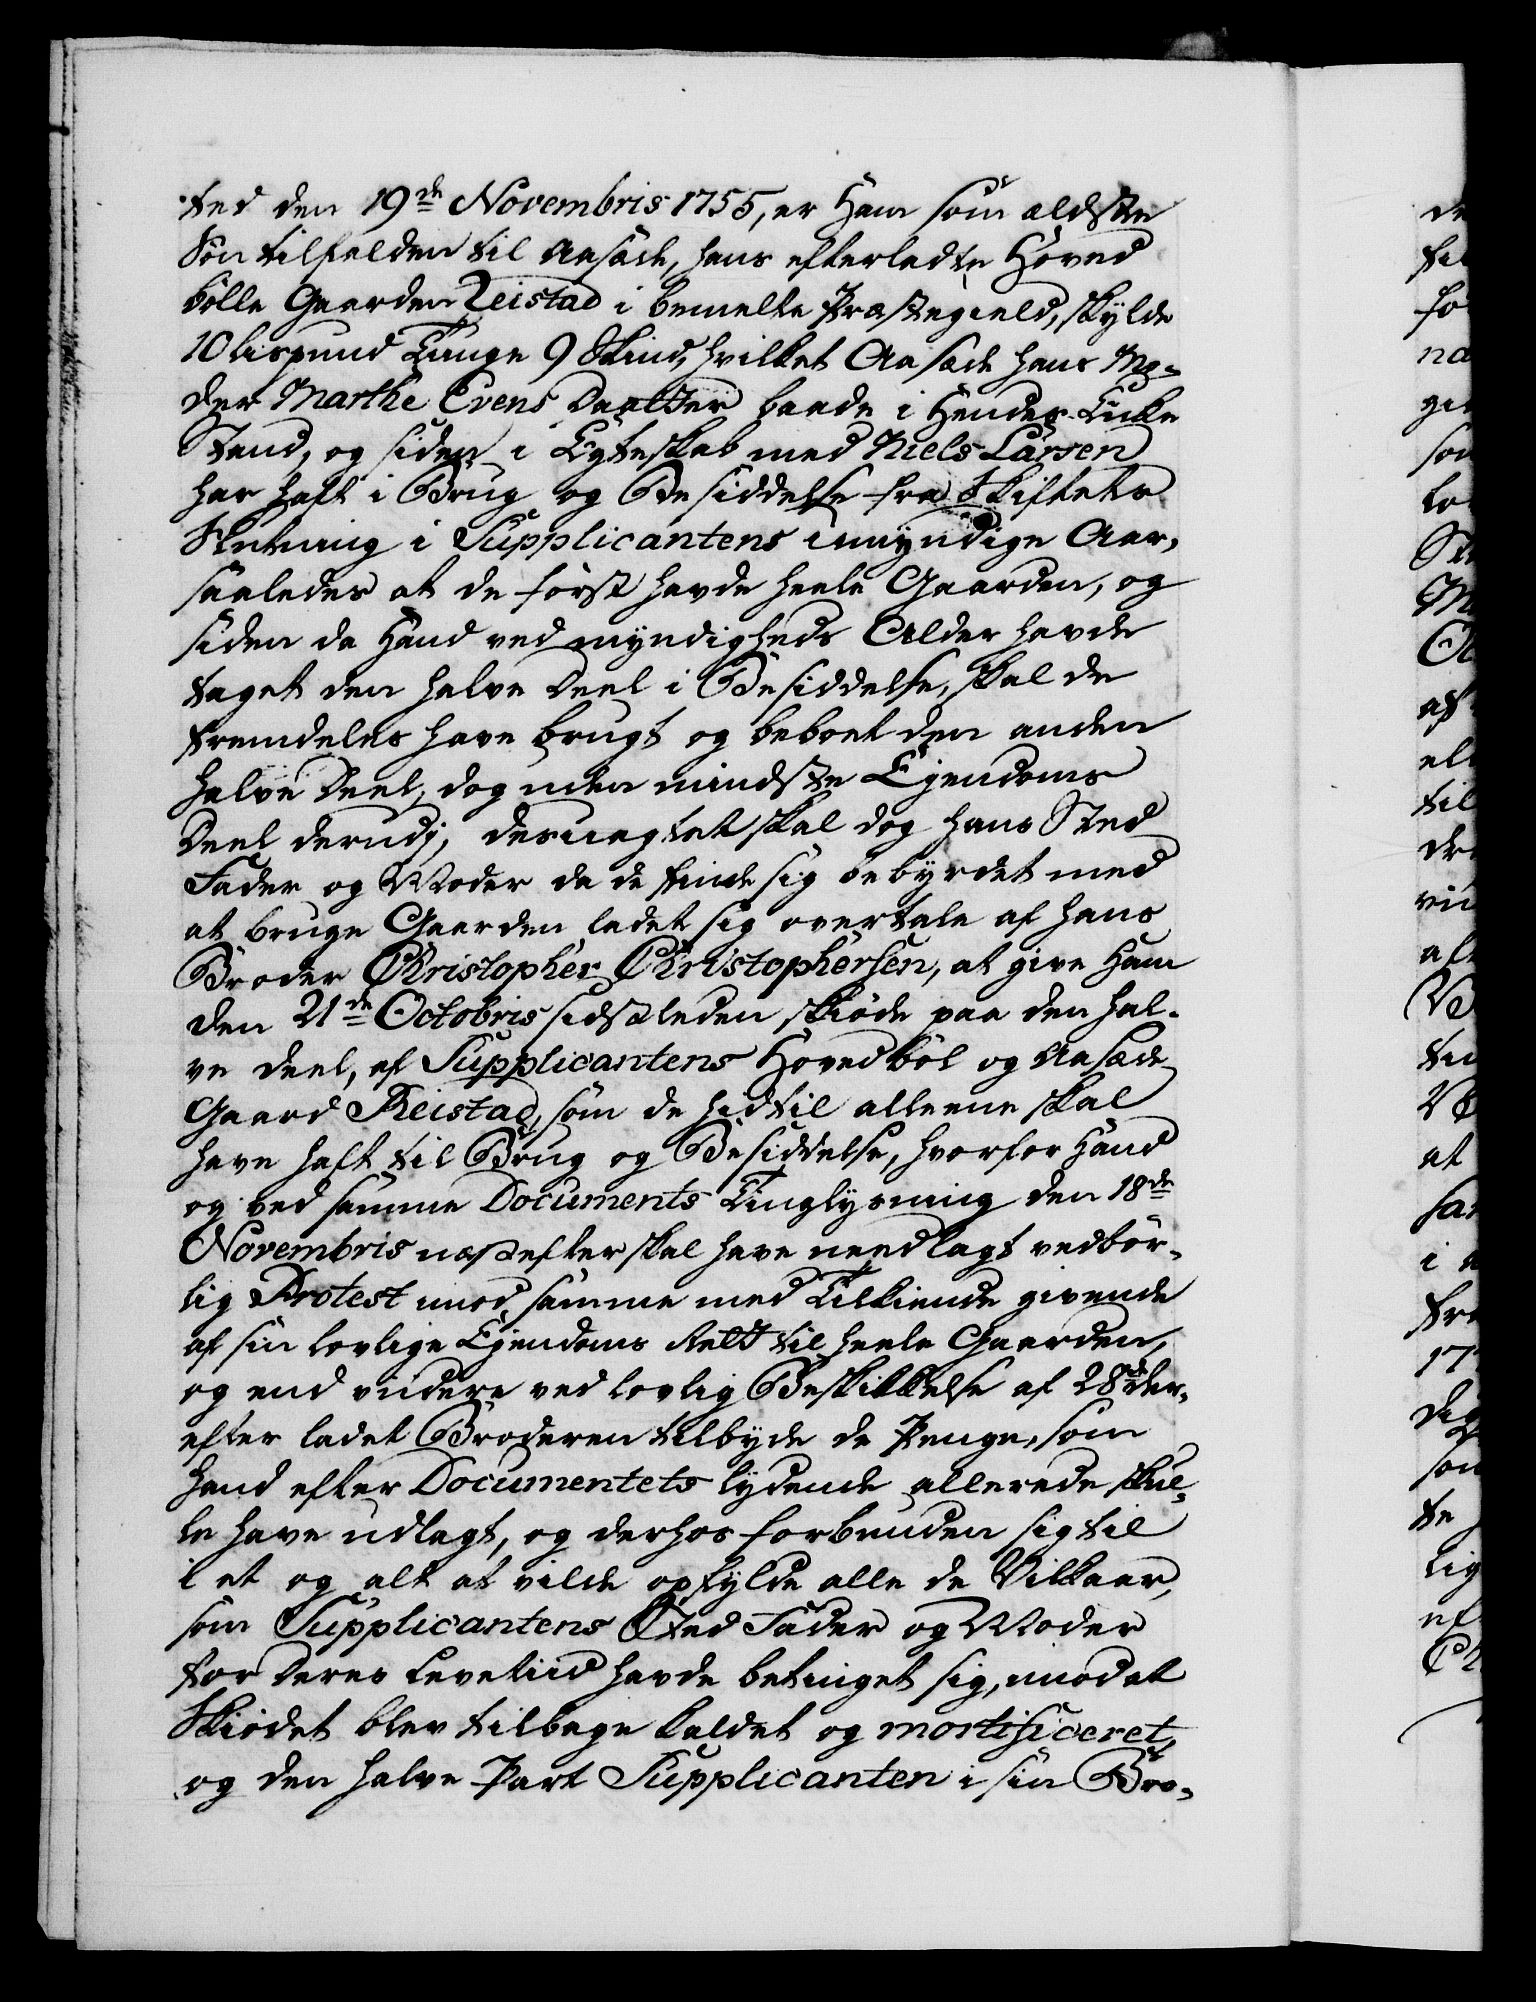 ted den 19de Novembris 1755, er Ham som ældste
Søn tilfalden til Aasæde, hans efterladte Hoved
bølle Gaarden Reistad i bemelte Præstegield, skylde
10 lispund Tunge 9 Skind, hvilket Aasæde hans Mo-
der Marthe Evens Daatter baade i Hendes Enke
Stand, og siden i Egteskab med Niels Larsen
har haft i Brug og Besiddelse fra Skiftets
Slutning i Supplicantens umyndige Aar,
saaledes at de først havde heele Gaarden, og
siden da Hand ved myndigheds Alder havde
taget den halve Deel i Besiddelse, skal de
fremdeles have brugt og beboet den anden
halve Deel, dog uden mindste Ejendoms
Deel derudj; desuagtet skal dog hans Sted
Fader og Moder da de finde sig bebyrdet med
at bruge Gaarden ladet sig overtale af hans
Broder Christopher Christophersen, at give Ham
den 21de Octobris sidstleden skiøde paa den hal-
ve deel, af Supplicantens Hovedbøl og Aasæde
Gaard Reistad, som de hidtil alleene skal
have haft til Brug og Besiddelse, hvorfor Hand
og ved samme Documents Tinglysning den 18de
Novembris næst efter skal have nedlagt vedbør-
lig Protest imod samme med Tilkiende givende
af sin lovlige Ejendoms Rett til heele Gaarden,
og end videre ved lovlig Beskikkelse af 28de der-
efter ladet Broderen tilbyde de Penge, som
Hand efter Documentets lydende allerede skul-
le have udlagt, og derhos forbunden sig til
i et og alt at vilde opfylde alle de Vilkaar,
som Supplicantens Sted Fader og Moder
for deres Levetiid havde betinget sig, imod at
Skiødet blev tilbage kaldet og mortificeret,
og den halve Part Supplicanten i sin Bro-